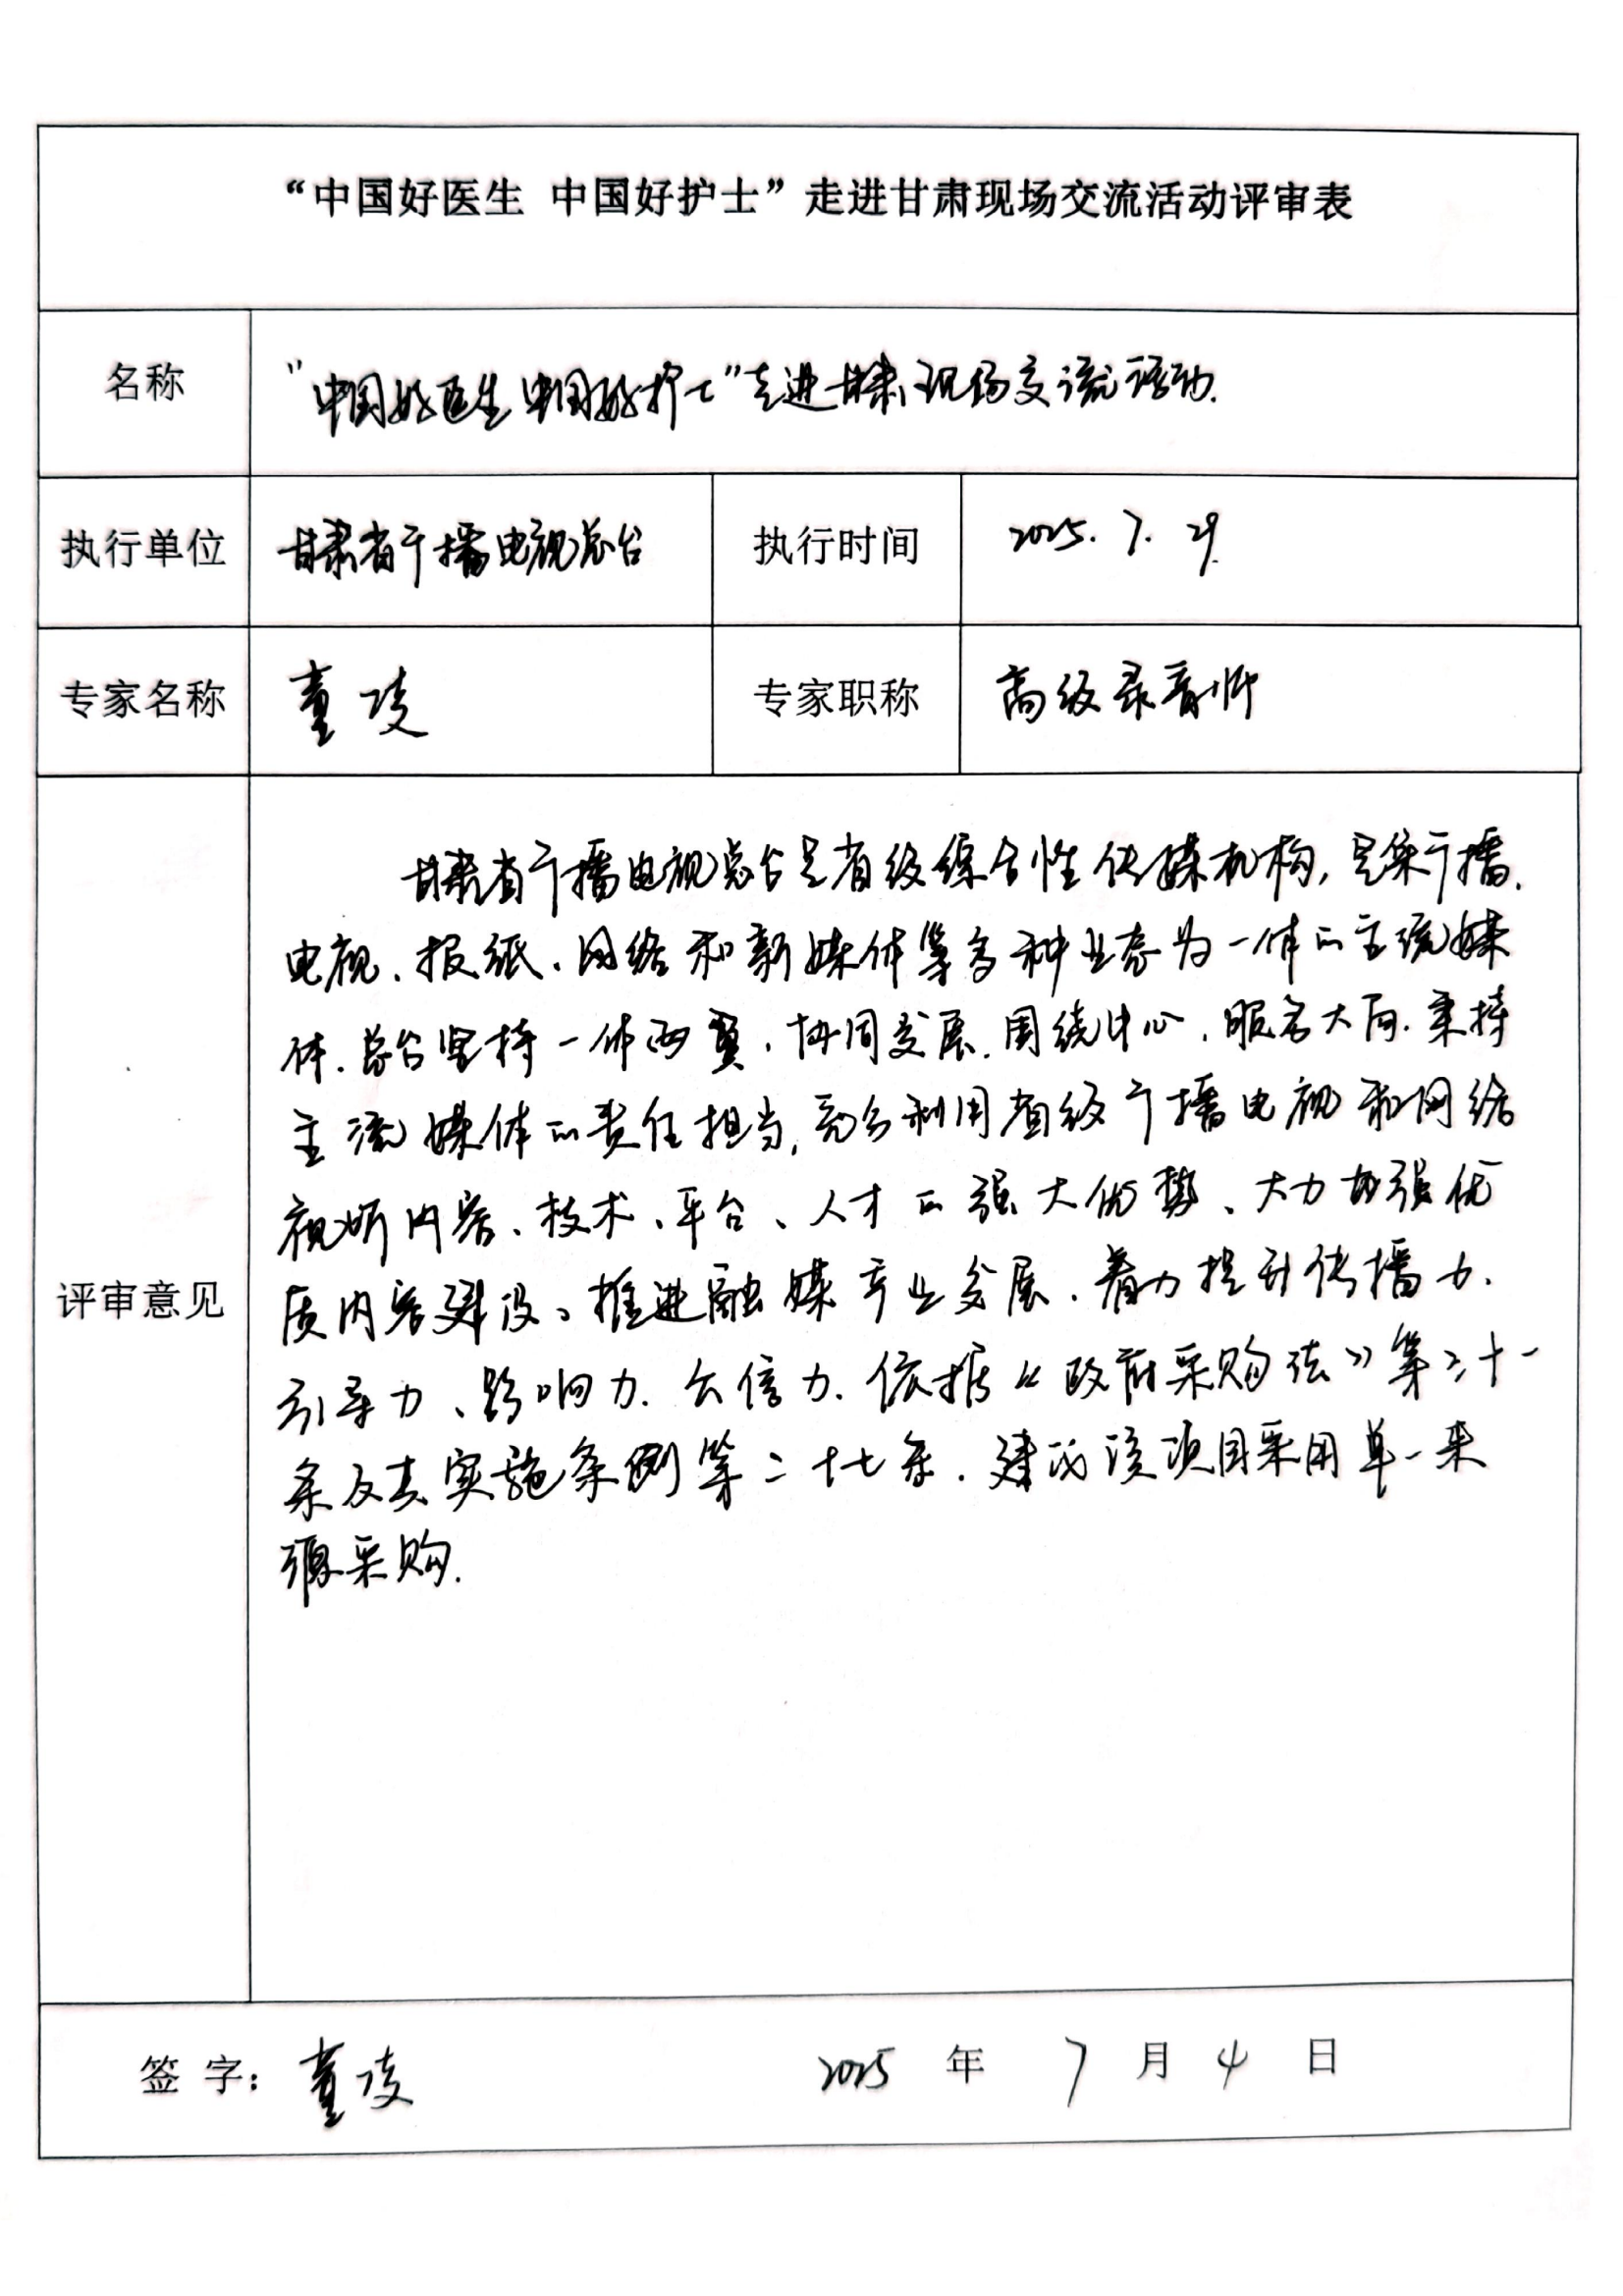 “中国好医生 中国好护士”走进甘肃现场交流活动评审表
名称
“中国好医生 中国好护士”走进甘肃现场交流活动.
执行单位
甘肃省广播电视总台
执行时间
2025. 7. 29.
专家名称
董凌
专家职称
高级录音师
评审意见
甘肃省广播电视总台是省级综合性传媒机构,是集广播、
电视、报纸、网络和新媒体等多种业态为一体的主流媒
体.总台坚持一体两翼、协同发展.围绕中心、服务大局.秉持
主流媒体的责任担当,充分利用省级广播电视和网络
视听内容、技术、平台、人才的强大优势、大力加强优
质内容建设、推进融媒产业发展、着力提升传播力、
引导力、影响力.公信力.依据《政府采购法》第三十一
条及其实施条例第二十七条.建议该项目采用单一来
源采购.
签 字：董凌
2025 年 7 月 4 日